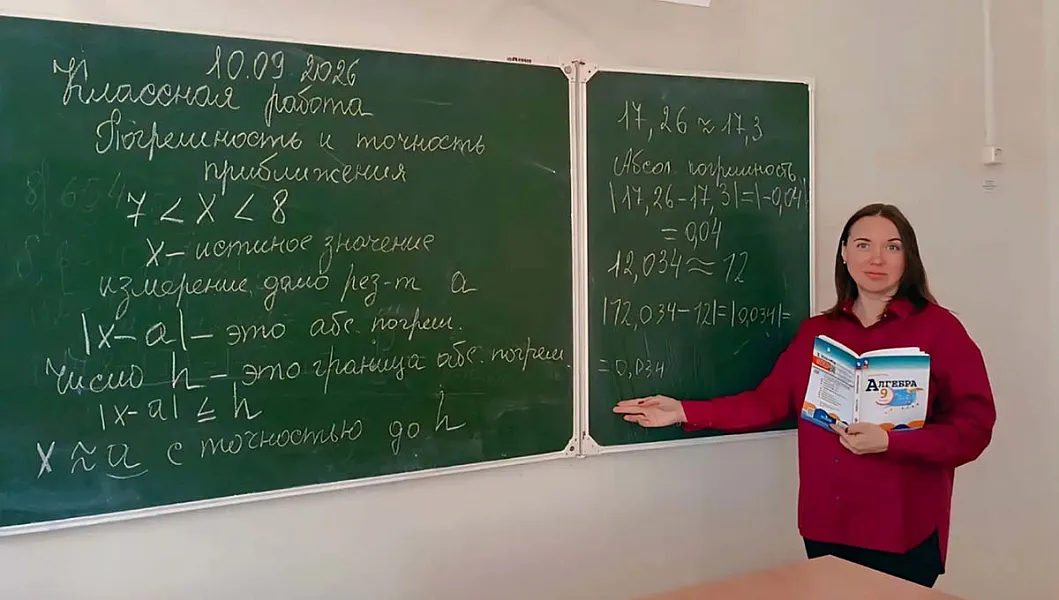 10.09.2026
Классная работа
Погрешность и точность
приближения
7 < x < 8
x – истиное значение
измерение дало рез-т a
|x-a| – это абс. погреш.
Число h – это граница абс. погреш.
|x-a| ≤ h
x ≈ a с точностью до h
17,26 ≈ 17,3
Абсол. погрешность
|17,26-17,3|=|-0,04|
= 0,04
12,034 ≈ 12
|12,034-12|=|0,034|=
= 0,034
АЛГЕБРА
9